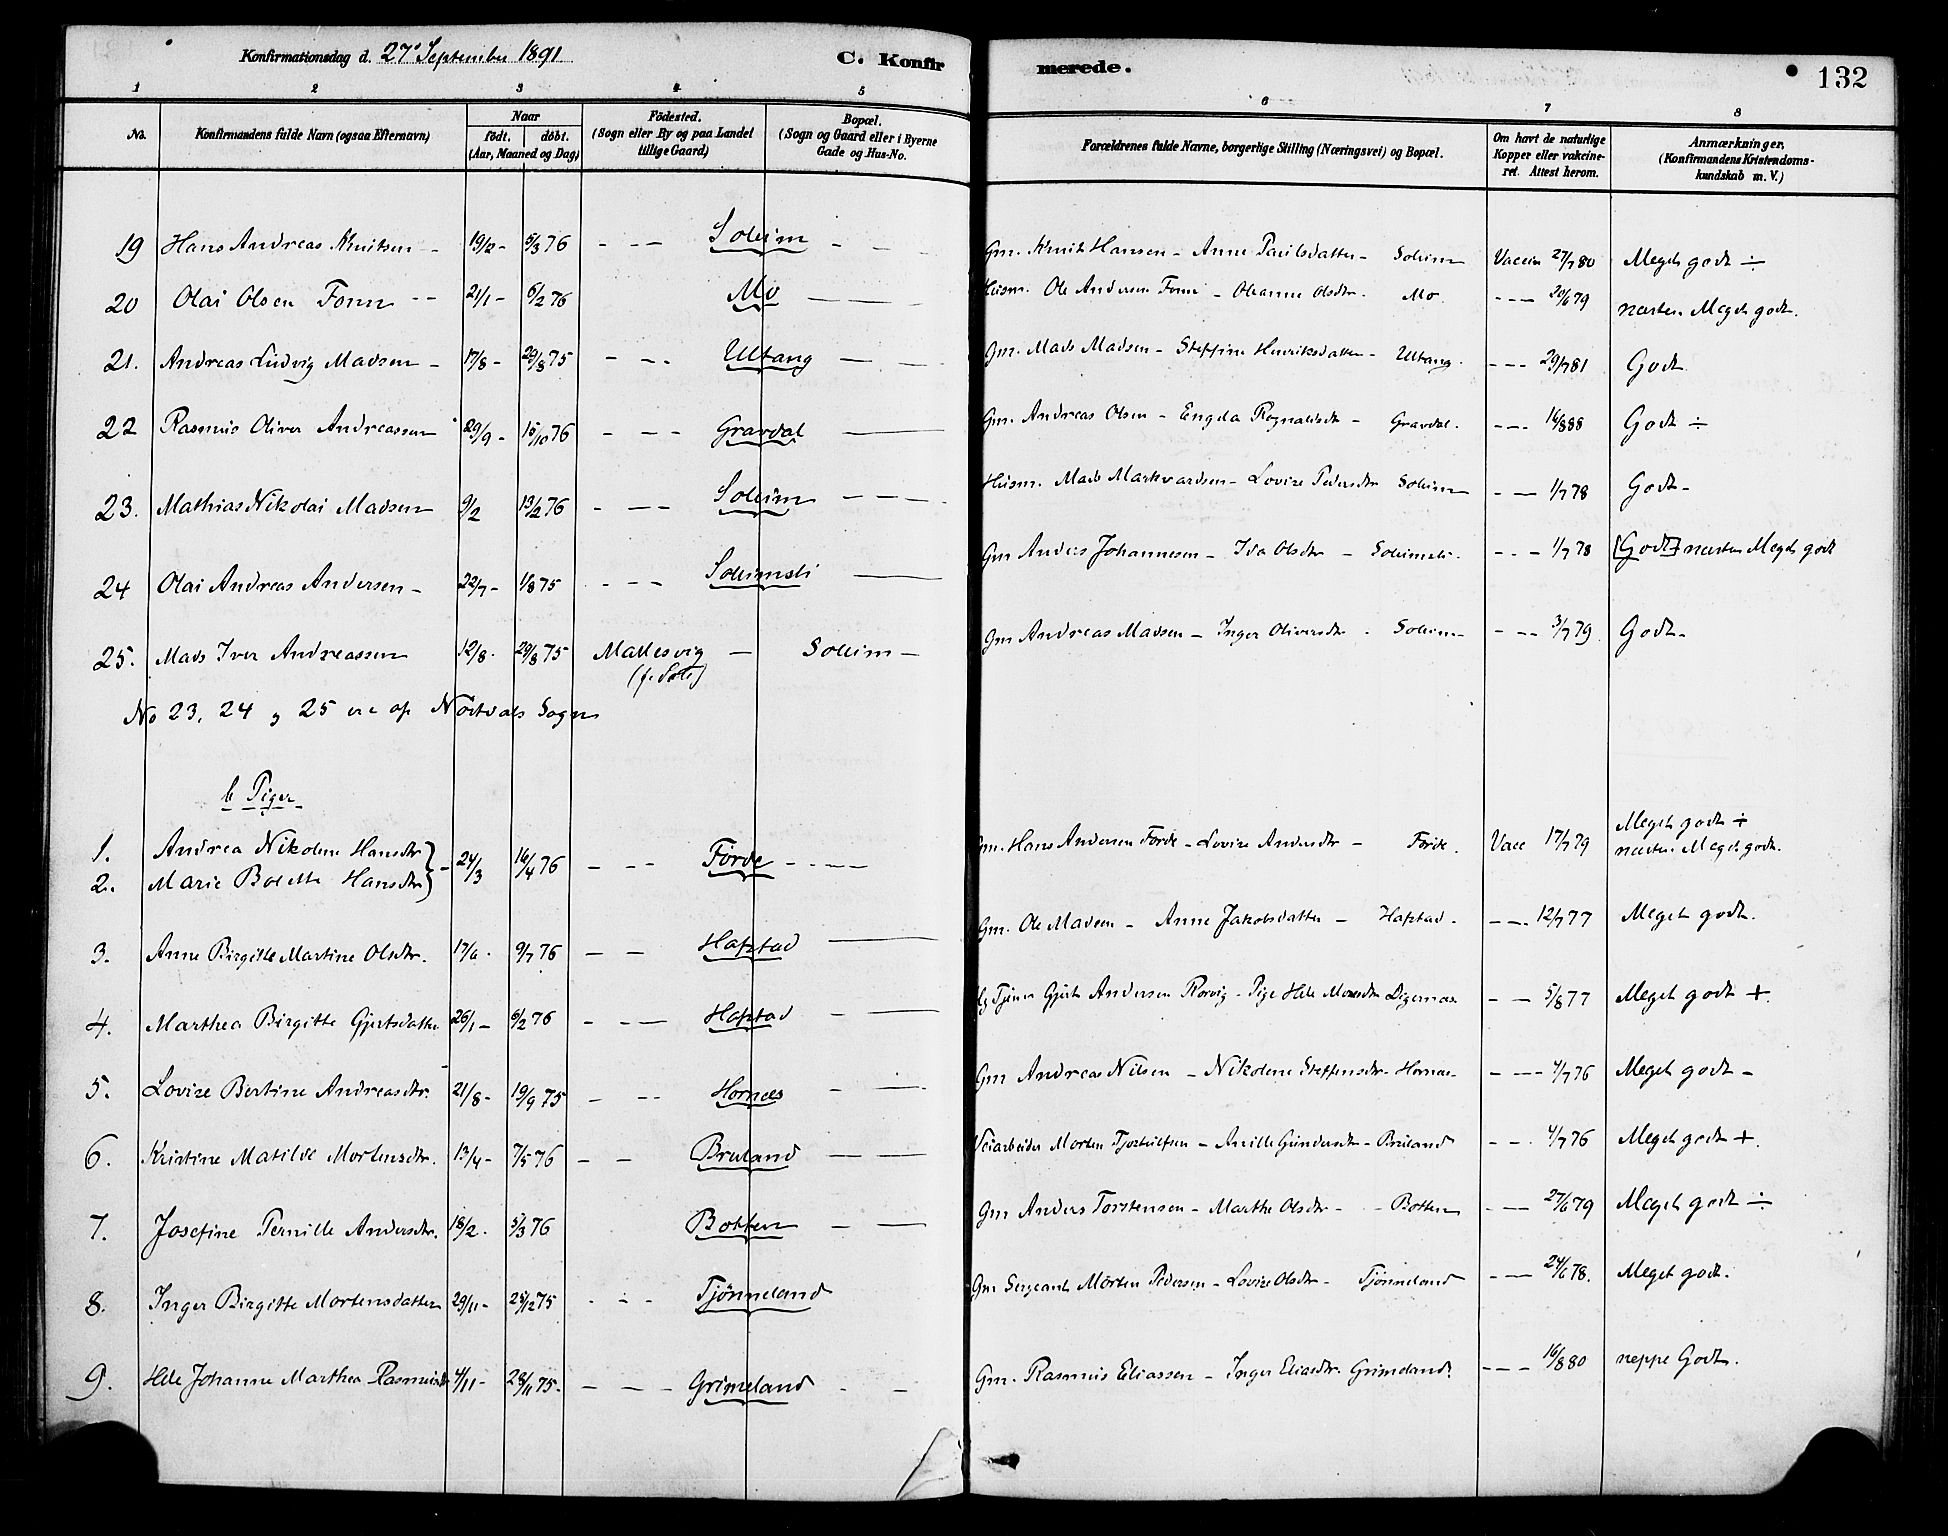 Konfirmationsdag d. 27' September 1891.
C. Konfirmerede.
132
1 2 3 4 5 6 7 8
No. Konfirmandens fulde Navn (ogsaa Efternavn)
Naar
født. døbt.
(Aar, Maaned og Dag)
Fødested.
(Sogn eller By og paa Landet
tillige Gaard)
Bopæl.
(Sogn og Gaard eller i Byerne
Gade og Hus-No.
Forældrenes fulde Navne, borgerlige Stilling (Næringsvei) og Bopæl.
Om havt de naturlige
Kopper eller vakcine-
ret. Attest herom.
Anmærkninger,
(Konfirmandens Kristendoms-
kundskab m. V.)
19 Hans Andreas Knutsen - 19/2 - 5/3 76 - - - Soleim - - Gm. Knut Hansen - Anne Paulsdatter - Soleim Vaccin 27/7 80 Meget godt ÷
20 Olai Olsen Fonn - - 21/1 - 6/2 76 Mo - - - Husm. Ole Andersen Fonn - Oleanne Olsdtr. Mo. - - - 20/6 79 næsten Meget godt.
21. Andreas Ludvig Madsen - 17/8 - 29/8 75 - - - Ultang - - Gm. Mads Madsen - Steffine Henriksdatter - Ultang. - - - 29/7 81 Godt.
22 Rasmus Oliver Andreassen 29/9 - 15/10 76 - - - Gravdal - Gm. Andreas Olsen - Engela Rognaldsdtr - Gravdal. - - - 16/8 88 Godt ÷
23. Mathias Nikolai Madsen 9/2 13/2 76 - - - Soleim - - - Husm. Mads Markvardsen - Lovise Pedersdtr Soleim - - 1/7 78 Godt -
24 Olai Andreas Andersen - 22/7 - 1/8 75 - - - Soleimsli - Gm Anders Johannesen - Ida Olsdtr - Soleimsli. - - - 1/7 78 [Godt] næsten Meget godt
25. Mads Iver Andreassen 12/8. 29/8 75 Mallesvig - Soleim - Gm Andreas Madsen - Inger Oliversdtr - Soleim - - - 3/7 79. Godt -
No 23, 24 og 25 ere af Nordals Sogn
b Piger
1. Andrea Nikoline Hansdtr } - 24/3 16/4 76 - - - Førde - - - - Gm. Hans Andersen Førde - Lovise Andersdtr - Førde. Vacc 17/7 79 Meget godt ÷
2. Marie Bolette Hansdtr } næsten Meget godt.
3. Anne Birgitte Martine Olsdtr. 17/6. 9/7 76 - - Hafstad - Gm. Ole Madsen - Anne Jakobsdatter - Hafstad. - - - 12/7 77 Meget godt.
4. Marthea Birgitte Gjertsdatter 26/1 - 6/2 76 - - - Hafstad - - Gjert Andersen Rørvig - Pige - - 5/8 77 Meget godt +.
5. Lovise Bertine Andreasdtr. 21/8 - 19/9 75 - - - Hornæs - - Gm Andreas Nilsen - Nikoline Steffensdtr - Hornæs - - - - 4/7 76 Meget godt -
6. Kristine Matilde Mortensdtr. 13/4 - 7/5 76 - - Bruland - - Veiarbeider Morten - Bruland - - . 4/7 76 Meget godt +.
7. Josefine Pernille Andersdtr. 18/2. 5/3 76 Botten - - Gm Anders Torstensen - Marthe Olsdtr - - Botten - - 27/6 79 Meget godt ÷
8. Inger Birgitte Mortensdatter 29/11 - 25/12 75 - - - Tjønneland Gm Sergeant Morten Pedersen - Lovise Olsdtr - Tjønneland - - 24/6 78. Meget godt.
9. Hele Johanne Marthea Rasmusdtr 4/11 - 28/11 75 - - - - Grimeland - - Gm. Rasmus Eliassen - Inger Eliasdtr. Grimeland. - - - 16/8 80 neppe Godt.